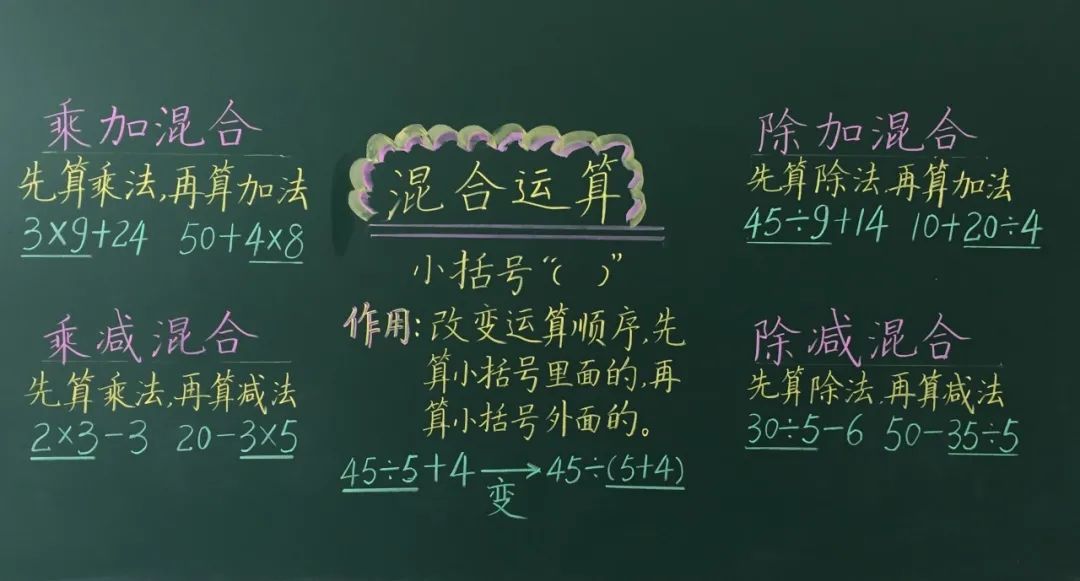 混合运算
乘加混合
先算乘法,再算加法
3×9+24 50+4×8
乘减混合
先算乘法,再算减法
2×3-3 20-3×5
小括号“( )”
作用:改变运算顺序,先
算小括号里面的,再
算小括号外面的。
45÷5+4→45÷(5+4)
变
除加混合
先算除法,再算加法
45÷9+14 10+20÷4
除减混合
先算除法,再算减法
30÷5-6 50-35÷5